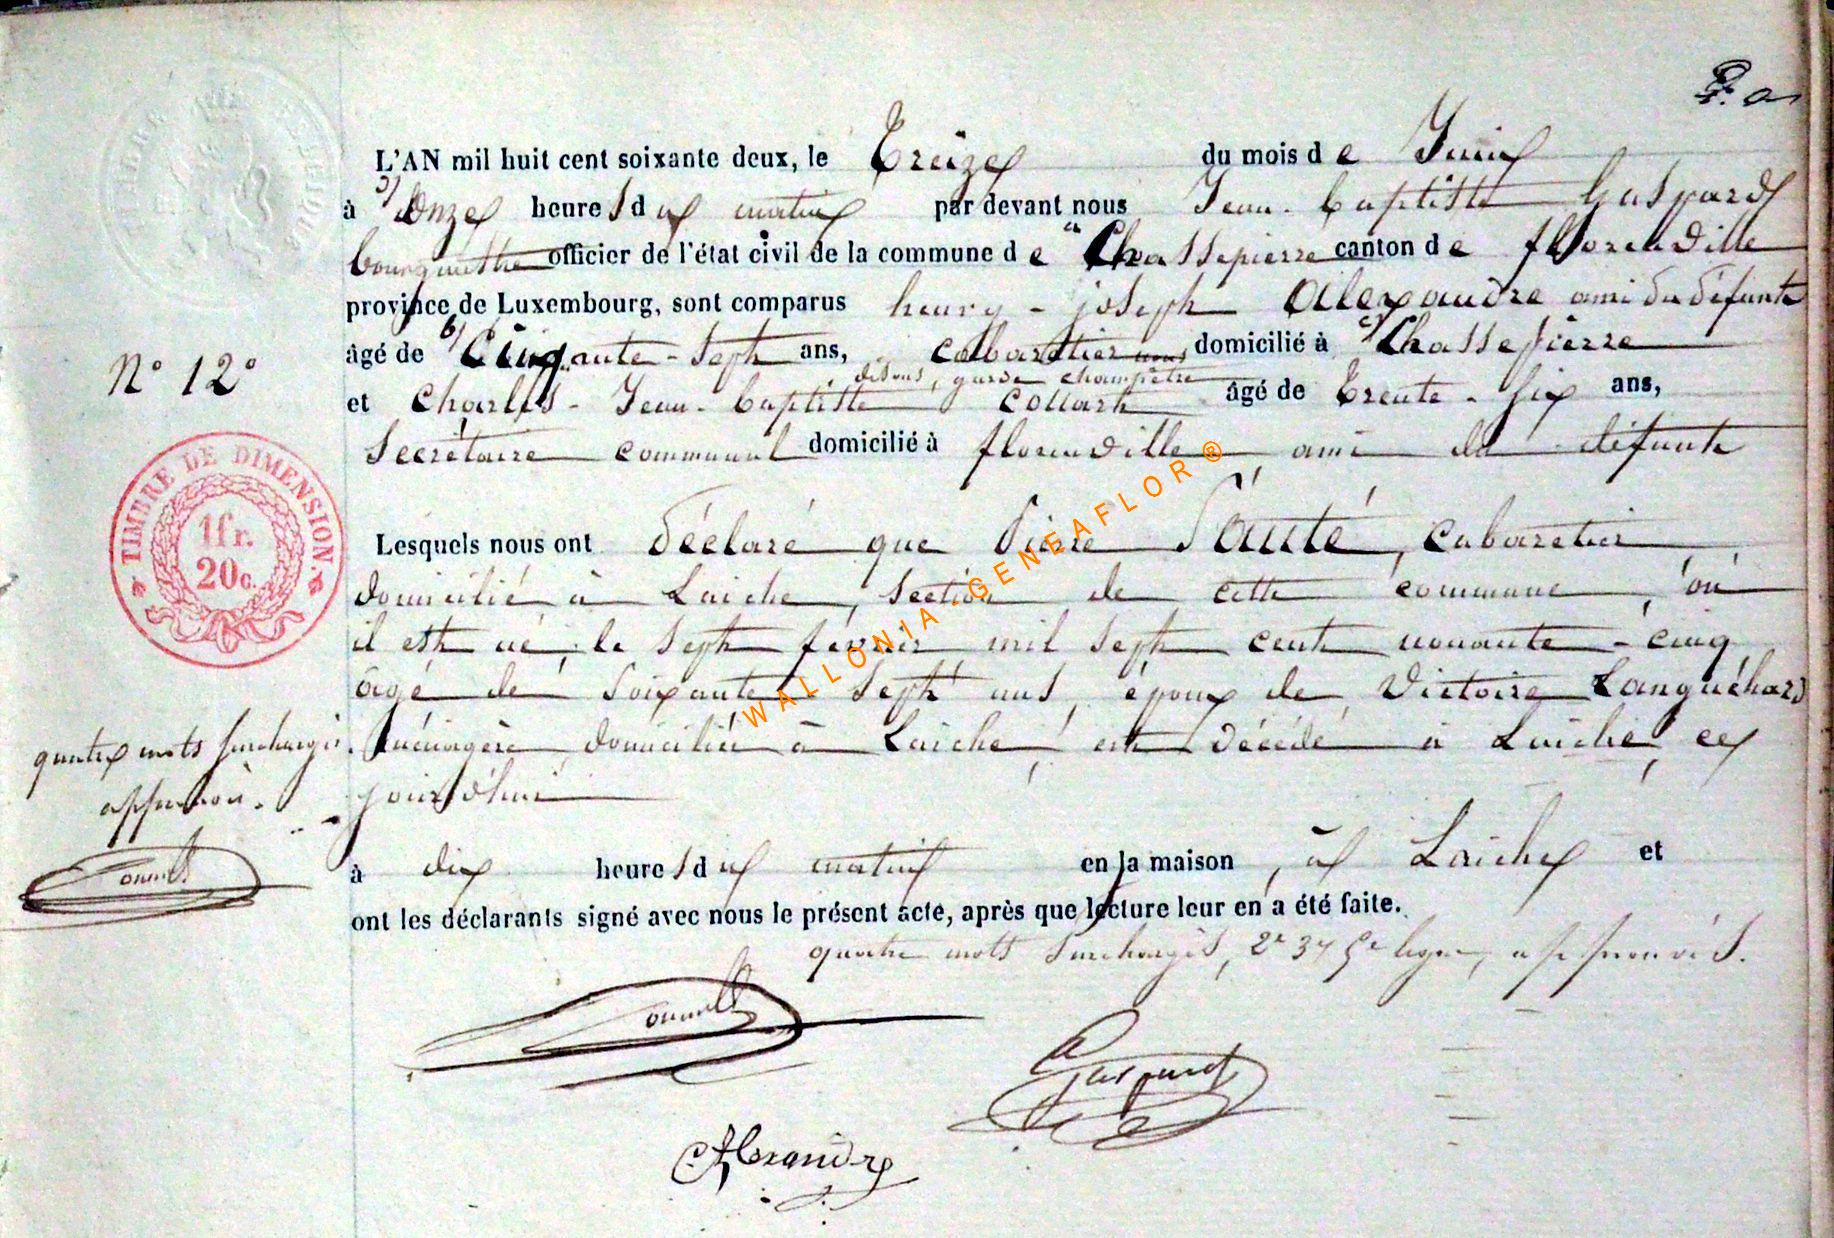 L'AN mil huit cent soixante deux, le Treize du mois de Juin
à onze heures du matin par devant nous Jean-baptiste Gaspard
bourguestre officier de l'état civil de la commune de Chassepierre canton de florenville
province de Luxembourg, sont comparus henry-joseph Alexandre ami du défunt
âgé de Cinquante-sept ans, cabaretier nous domicilié à Chassepierre
disons, garde champêtre
et Charles-Jean-baptiste Collart âgé de trente-six ans,
Secrétaire communal domicilié à florenville ami du défunt
Nº 12º
TIMBRE DE DIMENSION.
1fr.
20c.
Lesquels nous ont déclaré que Pierre Santé, cabaretier
domicilié à Laiche, section de cette commune, où
il est né, le sept février mil sept cent nonante-cinq
âgé de soixante sept ans, époux de Victoire Languéhard
ménagère domiciliée à Laiche, est décédé à Laiche, ce
jourd'hui
quatre mots surchargés
approuvés.
à dix heures du matin en la maison, à Laiche et
ont les déclarants signé avec nous le présent acte, après que lecture leur en a été faite.
quatre mots surchargés, 2e 3 5e ligne, approuvés.
Gaspard
Alexandre
WALLONIA-GENEAFLOR®